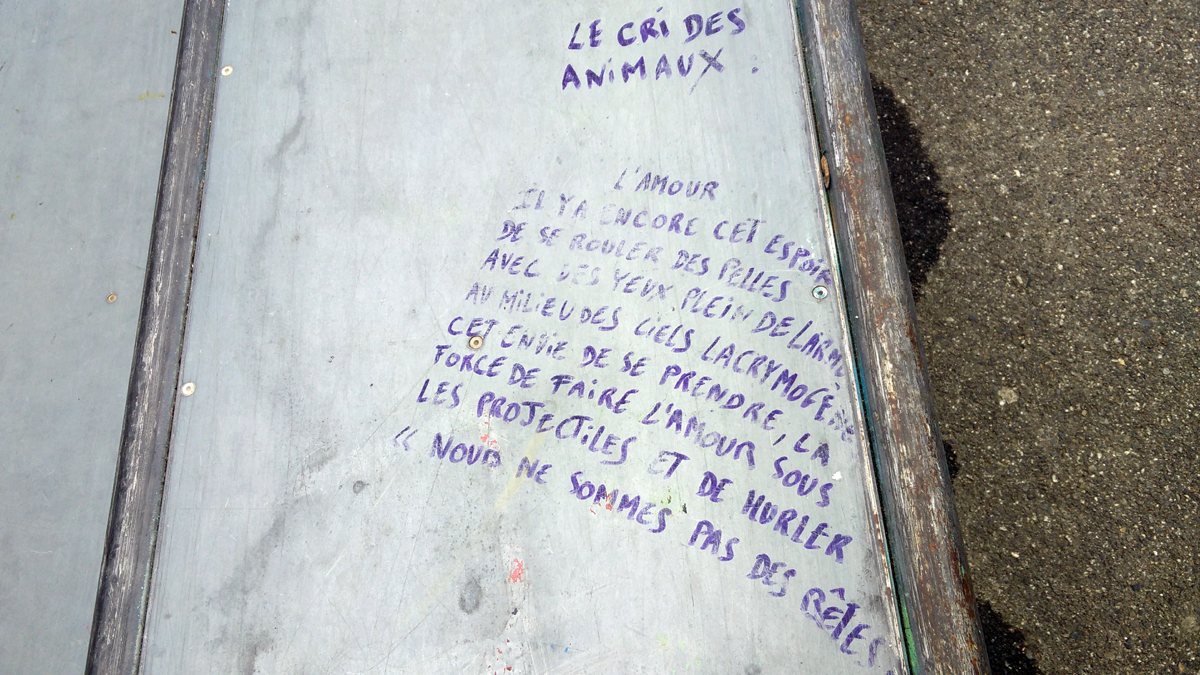 LE CRI DES
ANIMAUX :
L'AMOUR
IL Y A ENCORE CET ESPOIR
DE SE ROULER DES PELLES
AVEC DES YEUX PLEIN DE LARME
AU MILIEU DES CIELS LACRYMOGÈNE
CET ENVIE DE SE PRENDRE, LA
FORCE DE FAIRE L'AMOUR SOUS
LES PROJECTILES ET DE HURLER
« NOUS NE SOMMES PAS DES BÊTES